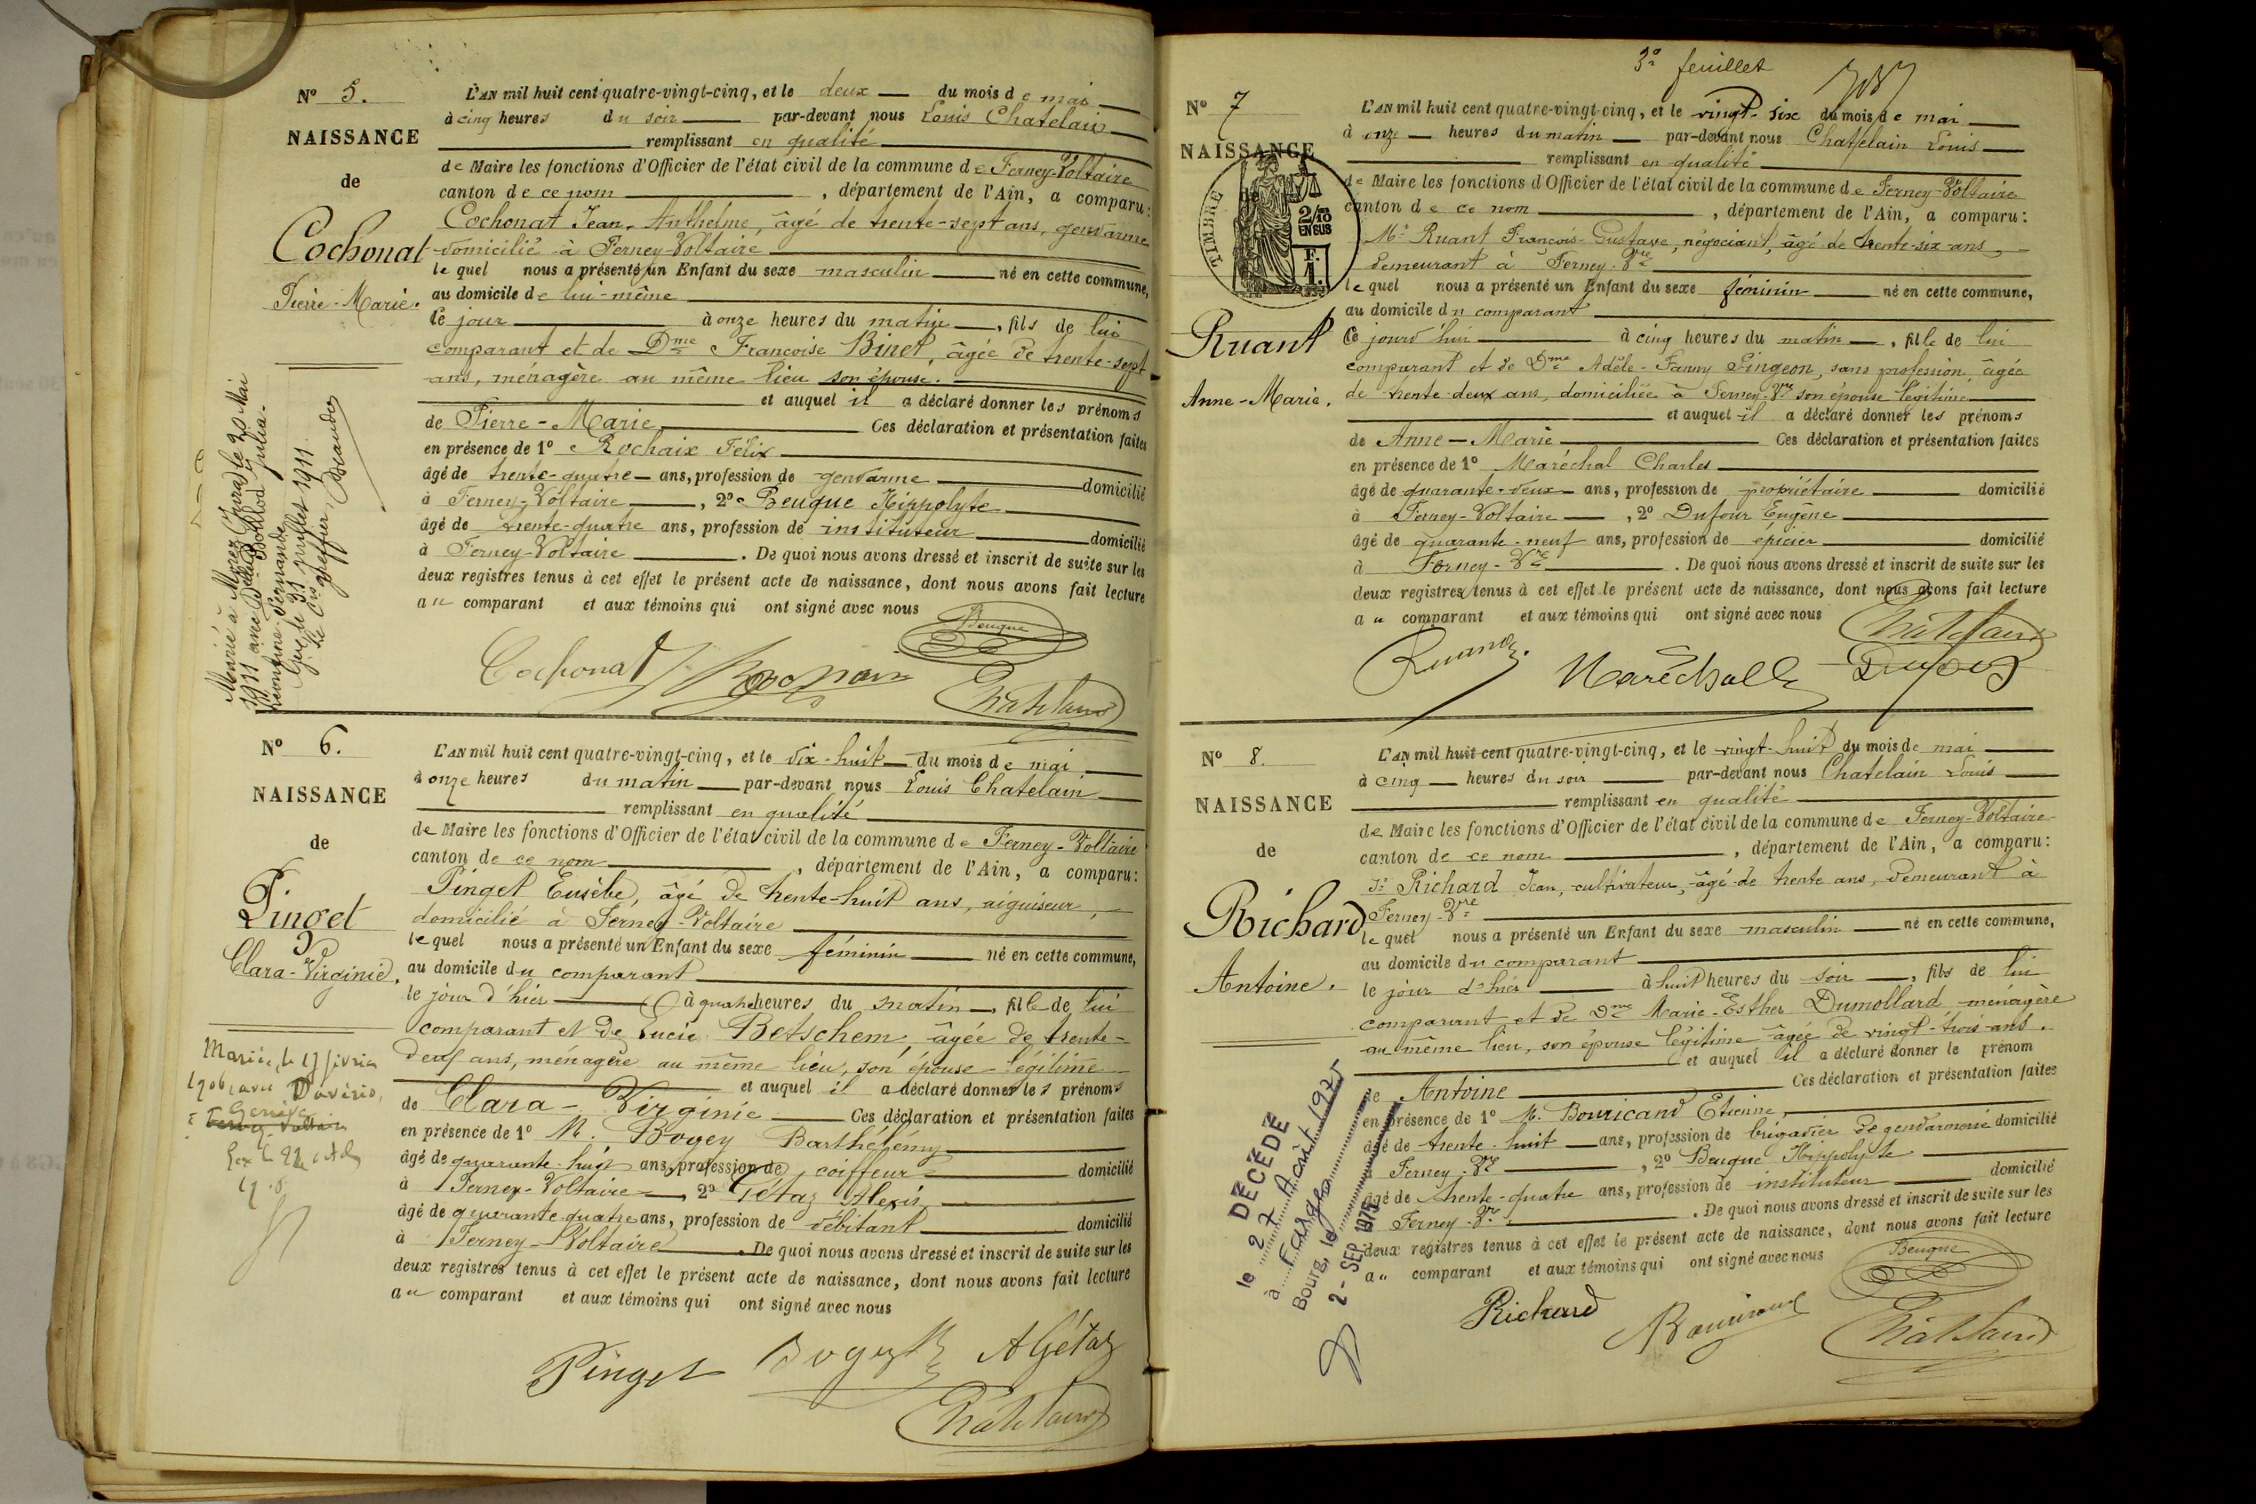 N° 5.
NAISSANCE
de
Cochonat
Pierre-Marie.
L'AN mil huit cent quatre-vingt-cinq, et le deux du mois de mai
à cinq heures du soir par-devant nous Louis Chatelain
remplissant en qualité
de Maire les fonctions d'Officier de l'état civil de la commune de Ferney-Voltaire
canton de ce nom, département de l'Ain, a comparu:
Cochonat Jean-Anthelme, âgé de trente-sept ans, gendarme
domicilié à Ferney-Voltaire
lequel nous a présenté un Enfant du sexe masculin né en cette commune,
au domicile de lui-même
le jour à onze heures du matin, fils de lui
comparant et de Dme Françoise Binet, âgée de trente-sept
ans, ménagère au même lieu son épouse.
et auquel il a déclaré donner les prénoms
de Pierre-Marie Ces déclaration et présentation faites
en présence de 1° Rochaix Félix
âgé de trente-quatre ans, profession de gendarme domicilié
à Ferney-Voltaire, 2° Beuque Hippolyte
âgé de trente-quatre ans, profession de instituteur domicilié
à Ferney-Voltaire. De quoi nous avons dressé et inscrit de suite sur les
deux registres tenus à cet effet le présent acte de naissance, dont nous avons fait lecture
au comparant et aux témoins qui ont signé avec nous
Beuque
Cochonat
Chatelain
Marié à Morez (Jura) le 20 Mai
1911 avec
Léontine-Fernande
Gex le 31 juillet 1911.
Le Cis greffier,
N° 6.
NAISSANCE
de
Pinget
Clara-Virginie.
L'AN mil huit cent quatre-vingt-cinq, et le dix-huit du mois de mai
à onze heures du matin par-devant nous Louis Chatelain
remplissant en qualité
de Maire les fonctions d'Officier de l'état civil de la commune de Ferney-Voltaire
canton de ce nom, département de l'Ain, a comparu:
Pinget Eusèbe, âgé de trente-huit ans, aiguiseur,
domicilié à Ferney-Voltaire
lequel nous a présenté un Enfant du sexe féminin né en cette commune,
au domicile du comparant
le jour d'hier à quatre heures du matin, fille de lui
comparant et de Lucie Betschem, âgée de trente-
deux ans, ménagère au même lieu, son épouse légitime
et auquel il a déclaré donner les prénoms
de Clara-Virginie Ces déclaration et présentation faites
en présence de 1° M. Bogey Barthélémy
âgé de quarante-huit ans, profession de coiffeur domicilié
à Ferney-Voltaire, 2° Gétaz Alexis
âgé de quarante-quatre ans, profession de débitant domicilié
à Ferney-Voltaire. De quoi nous avons dressé et inscrit de suite sur les
deux registres tenus à cet effet le présent acte de naissance, dont nous avons fait lecture
au comparant et aux témoins qui ont signé avec nous
Pinget Bogey B A Gétaz
Chatelain
Mariée le 17 février
1906 avec
à Genève
Ferney-Voltaire
3e feuillet
N° 7
NAISSANCE
de
TIMBRE
2/10
EN SUS
F.
1.
Ruant
Anne-Marie.
L'AN mil huit cent quatre-vingt-cinq, et le vingt-six du mois de mai
à onze heures du matin par-devant nous Chatelain Louis
remplissant en qualité
de Maire les fonctions d'Officier de l'état civil de la commune de Ferney-Voltaire
canton de ce nom, département de l'Ain, a comparu:
Mr Ruant François-Gustave, négociant, âgé de trente-six ans
demeurant à Ferney-Vre
lequel nous a présenté un Enfant du sexe féminin né en cette commune,
au domicile du comparant
Ce jourd'hui à cinq heures du matin, fille de lui
comparant et de Dme Adèle-Fanny Pingeon, sans profession, âgée
de trente-deux ans, domiciliée à Ferney-Vre son épouse légitime
et auquel il a déclaré donner les prénoms
de Anne-Marie Ces déclaration et présentation faites
en présence de 1° Maréchal Charles
âgé de quarante-deux ans, profession de propriétaire domicilié
à Ferney-Voltaire, 2° Dufour Eugène
âgé de quarante-neuf ans, profession de épicier domicilié
à Ferney-Vre. De quoi nous avons dressé et inscrit de suite sur les
deux registres tenus à cet effet le présent acte de naissance, dont nous avons fait lecture
au comparant et aux témoins qui ont signé avec nous
Chatelain
Ruant Maréchalle Dufour
N° 8.
NAISSANCE
de
Richard
Antoine.
L'AN mil huit cent quatre-vingt-cinq, et le vingt-huit du mois de mai
à cinq heures du soir par-devant nous Chatelain Louis
remplissant en qualité
de Maire les fonctions d'Officier de l'état civil de la commune de Ferney-Voltaire
canton de ce nom, département de l'Ain, a comparu:
Sr Richard Jean, cultivateur, âgé de trente ans, demeurant à
Ferney-Vre
lequel nous a présenté un Enfant du sexe masculin né en cette commune,
au domicile du comparant
le jour d'hier à huit heures du soir, fils de lui
comparant et de Dme Marie-Esther Dumollard, ménagère
au même lieu, son épouse légitime âgée de vingt-trois ans.
et auquel il a déclaré donner le prénom
de Antoine Ces déclaration et présentation faites
en présence de 1° M. Bouricand Etienne,
âgé de trente-huit ans, profession de brigadier de gendarmerie domicilié
à Ferney-Vre, 2° Beuque Hippolyte
âgé de trente-quatre ans, profession de instituteur domicilié
à Ferney-Vre. De quoi nous avons dressé et inscrit de suite sur les
deux registres tenus à cet effet le présent acte de naissance, dont nous avons fait lecture
au comparant et aux témoins qui ont signé avec nous
Beuque
Richard Bouricand
Chatelain
DÉCÉDÉ
le 27 Août 1975
à Farges
Bourg, le
2 - SEP 1975